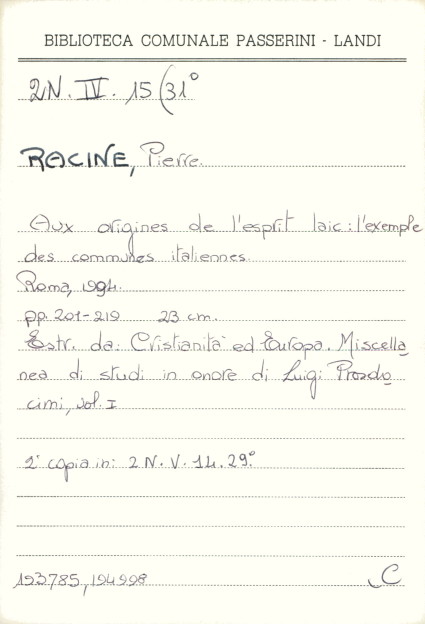 BIBLIOTECA COMUNALE PASSERINI - LANDI
2N. IV. 15 (31°
RACINE, Pierre.
Aux origines de l'esprit laic: l'exemple
des communes italiennes.
Roma, 1994.
pp. 201-219 23 cm.
Estr. da: Cristianità ed Europa. Miscella
nea di studi in onore di Luigi Prosdo
cimi, vol. I
2ª copia in: 2 N. V. 14. 29°.
193785, 194998
C